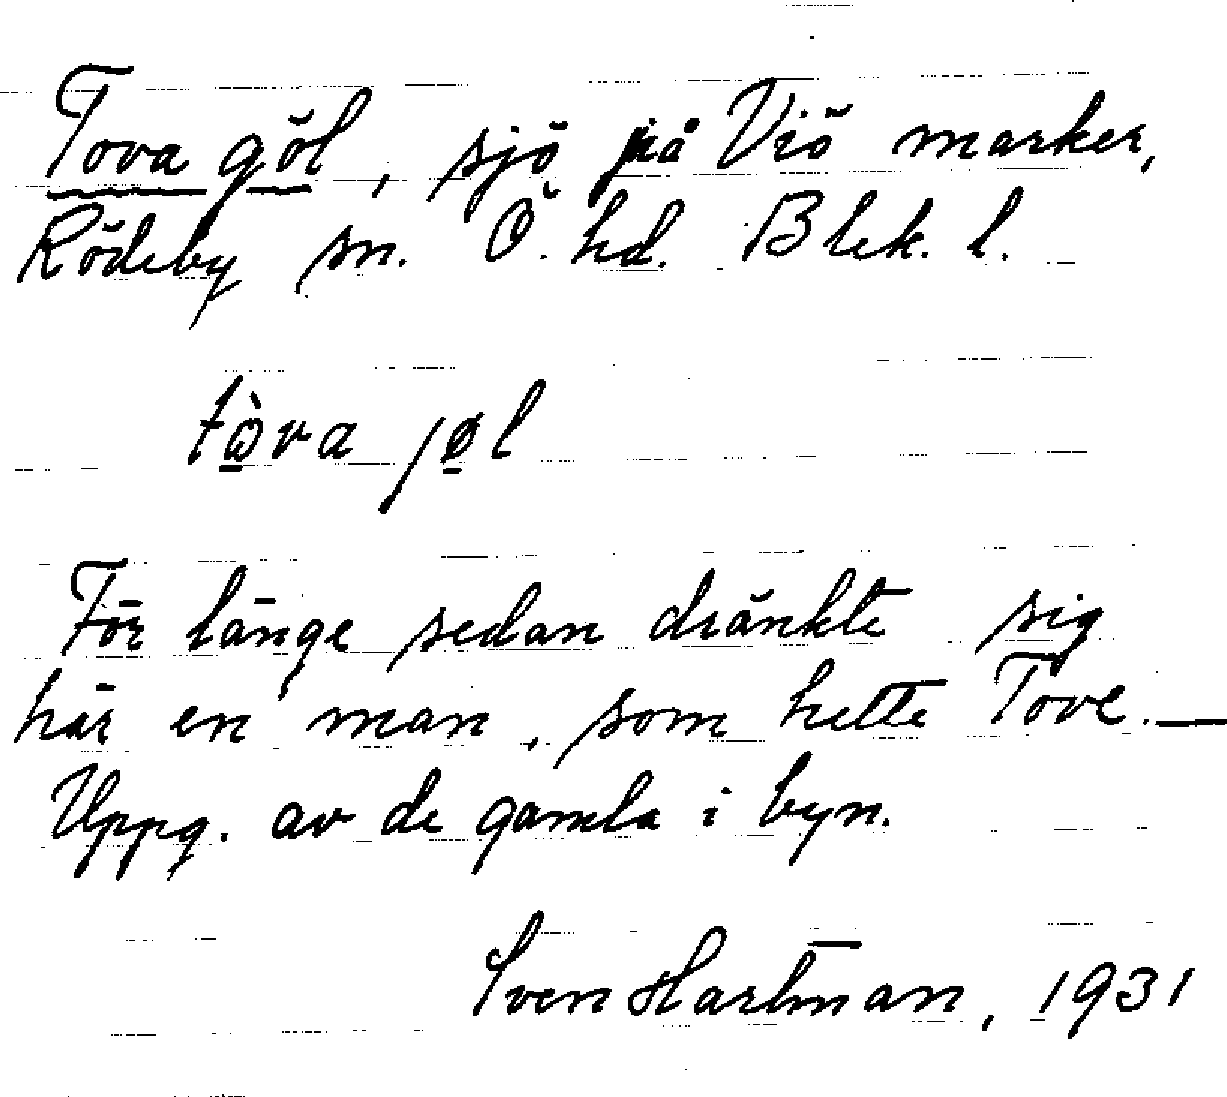 Tova göl, sjö på Viö marker,
Rödeby sn. Ö. hd. Blek. l.
tò̱va jø̱l
För länge sedan dränkte sig
här en man, som hette Tove. —
Uppg. av de gamla i byn.
Sven Hartman, 1931